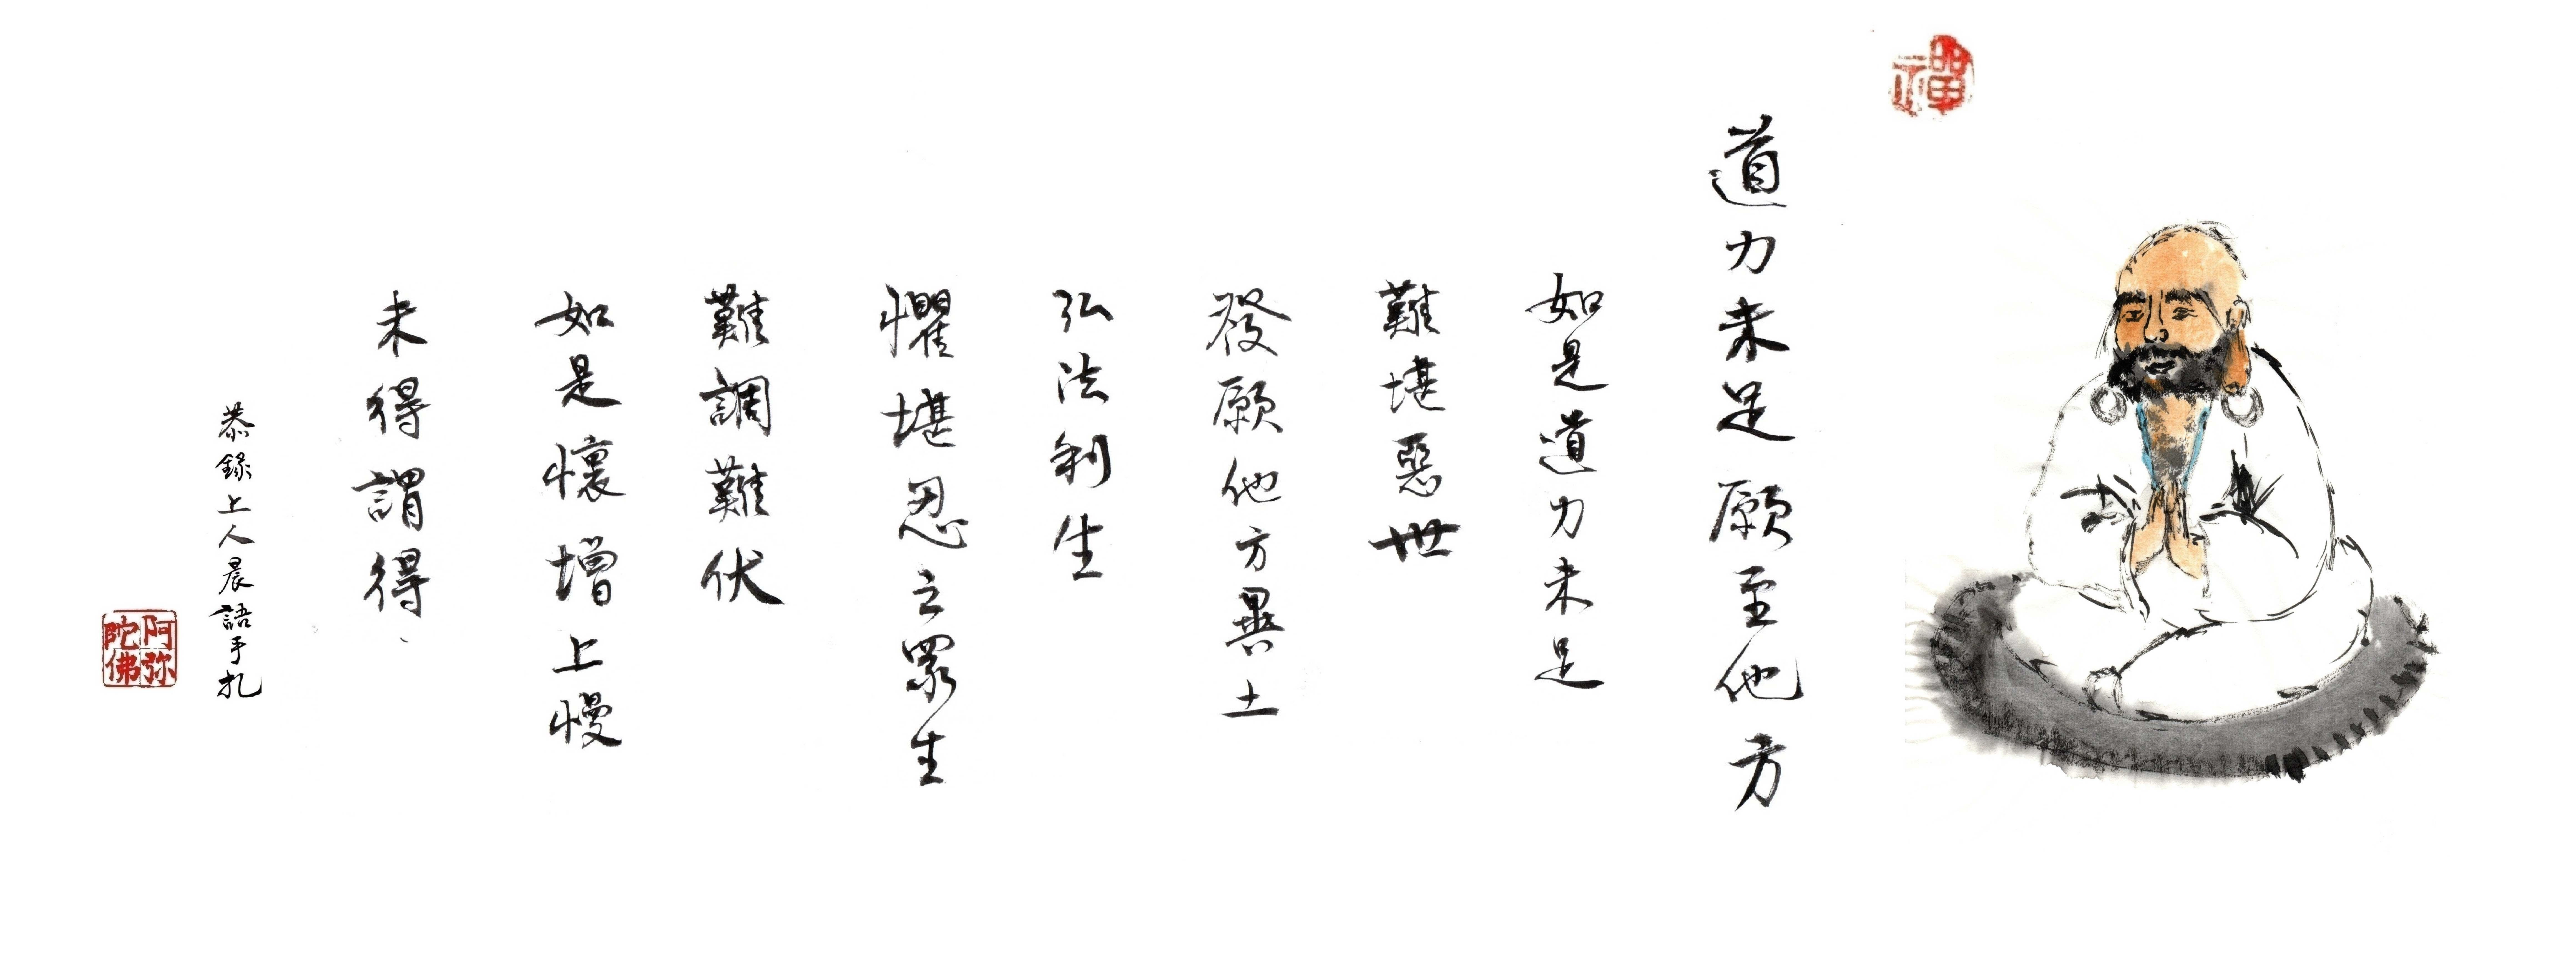 禪
道力未足願至他方
如是道力未足
難堪惡世
發願他方異土
弘法利生
懼堪忍之眾生
難調難伏
如是懷增上慢
未得謂得、
恭錄上人晨語手扎
阿弥陀佛